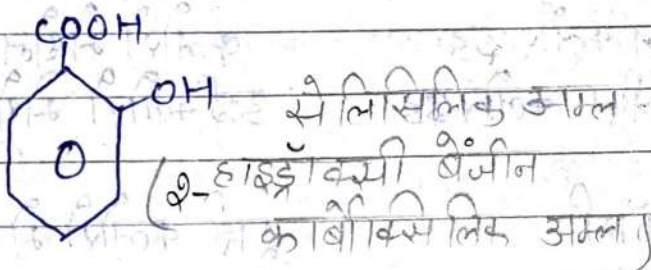 COOH
OH
सेलिसिलिक अम्ल
(2-हाइड्रॉक्सी बेंजीन
कार्बोक्सिलिक अम्ल)